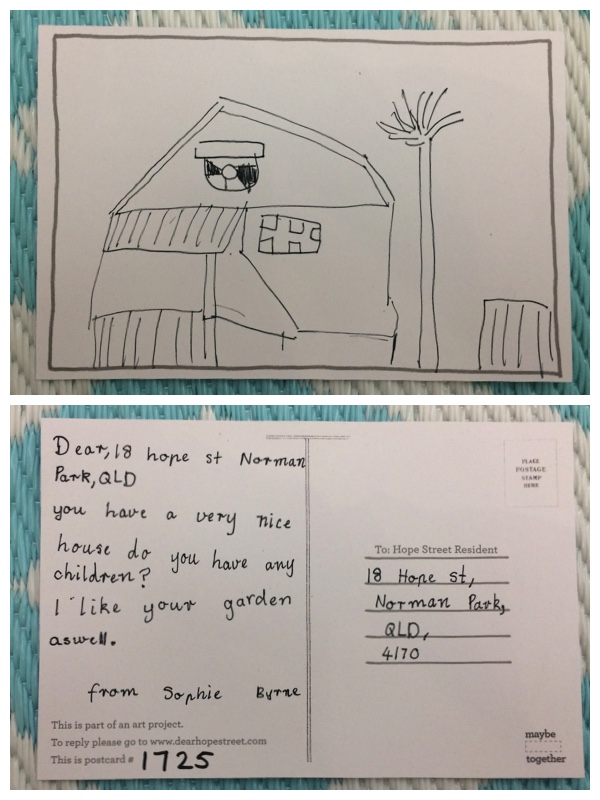 Dear, 18 hope st Norman
Park, QLD
you have a very nice
house do you have any
children?
I like your garden
aswell.
from Sophie Byrne
This is part of an art project.
To reply please go to www.dearhopestreet.com
This is postcard # 1725
PLACE
POSTAGE
STAMP
HERE
To: Hope Street Resident
18 Hope st,
Norman Park,
QLD,
4170
maybe
together